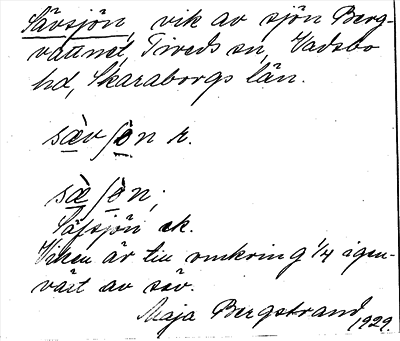 Sävsjön, vik av sjön Berg-
vattnet, Tiveds sn, Vadsbo
hd, Skaraborgs län.
sæ̀vʃòn r.
sæ̀ʃòn;
Säfsjön ek.
Viken är till omkring 1/4 igen-
växt av säv.
Maja Bergstrand
1929.